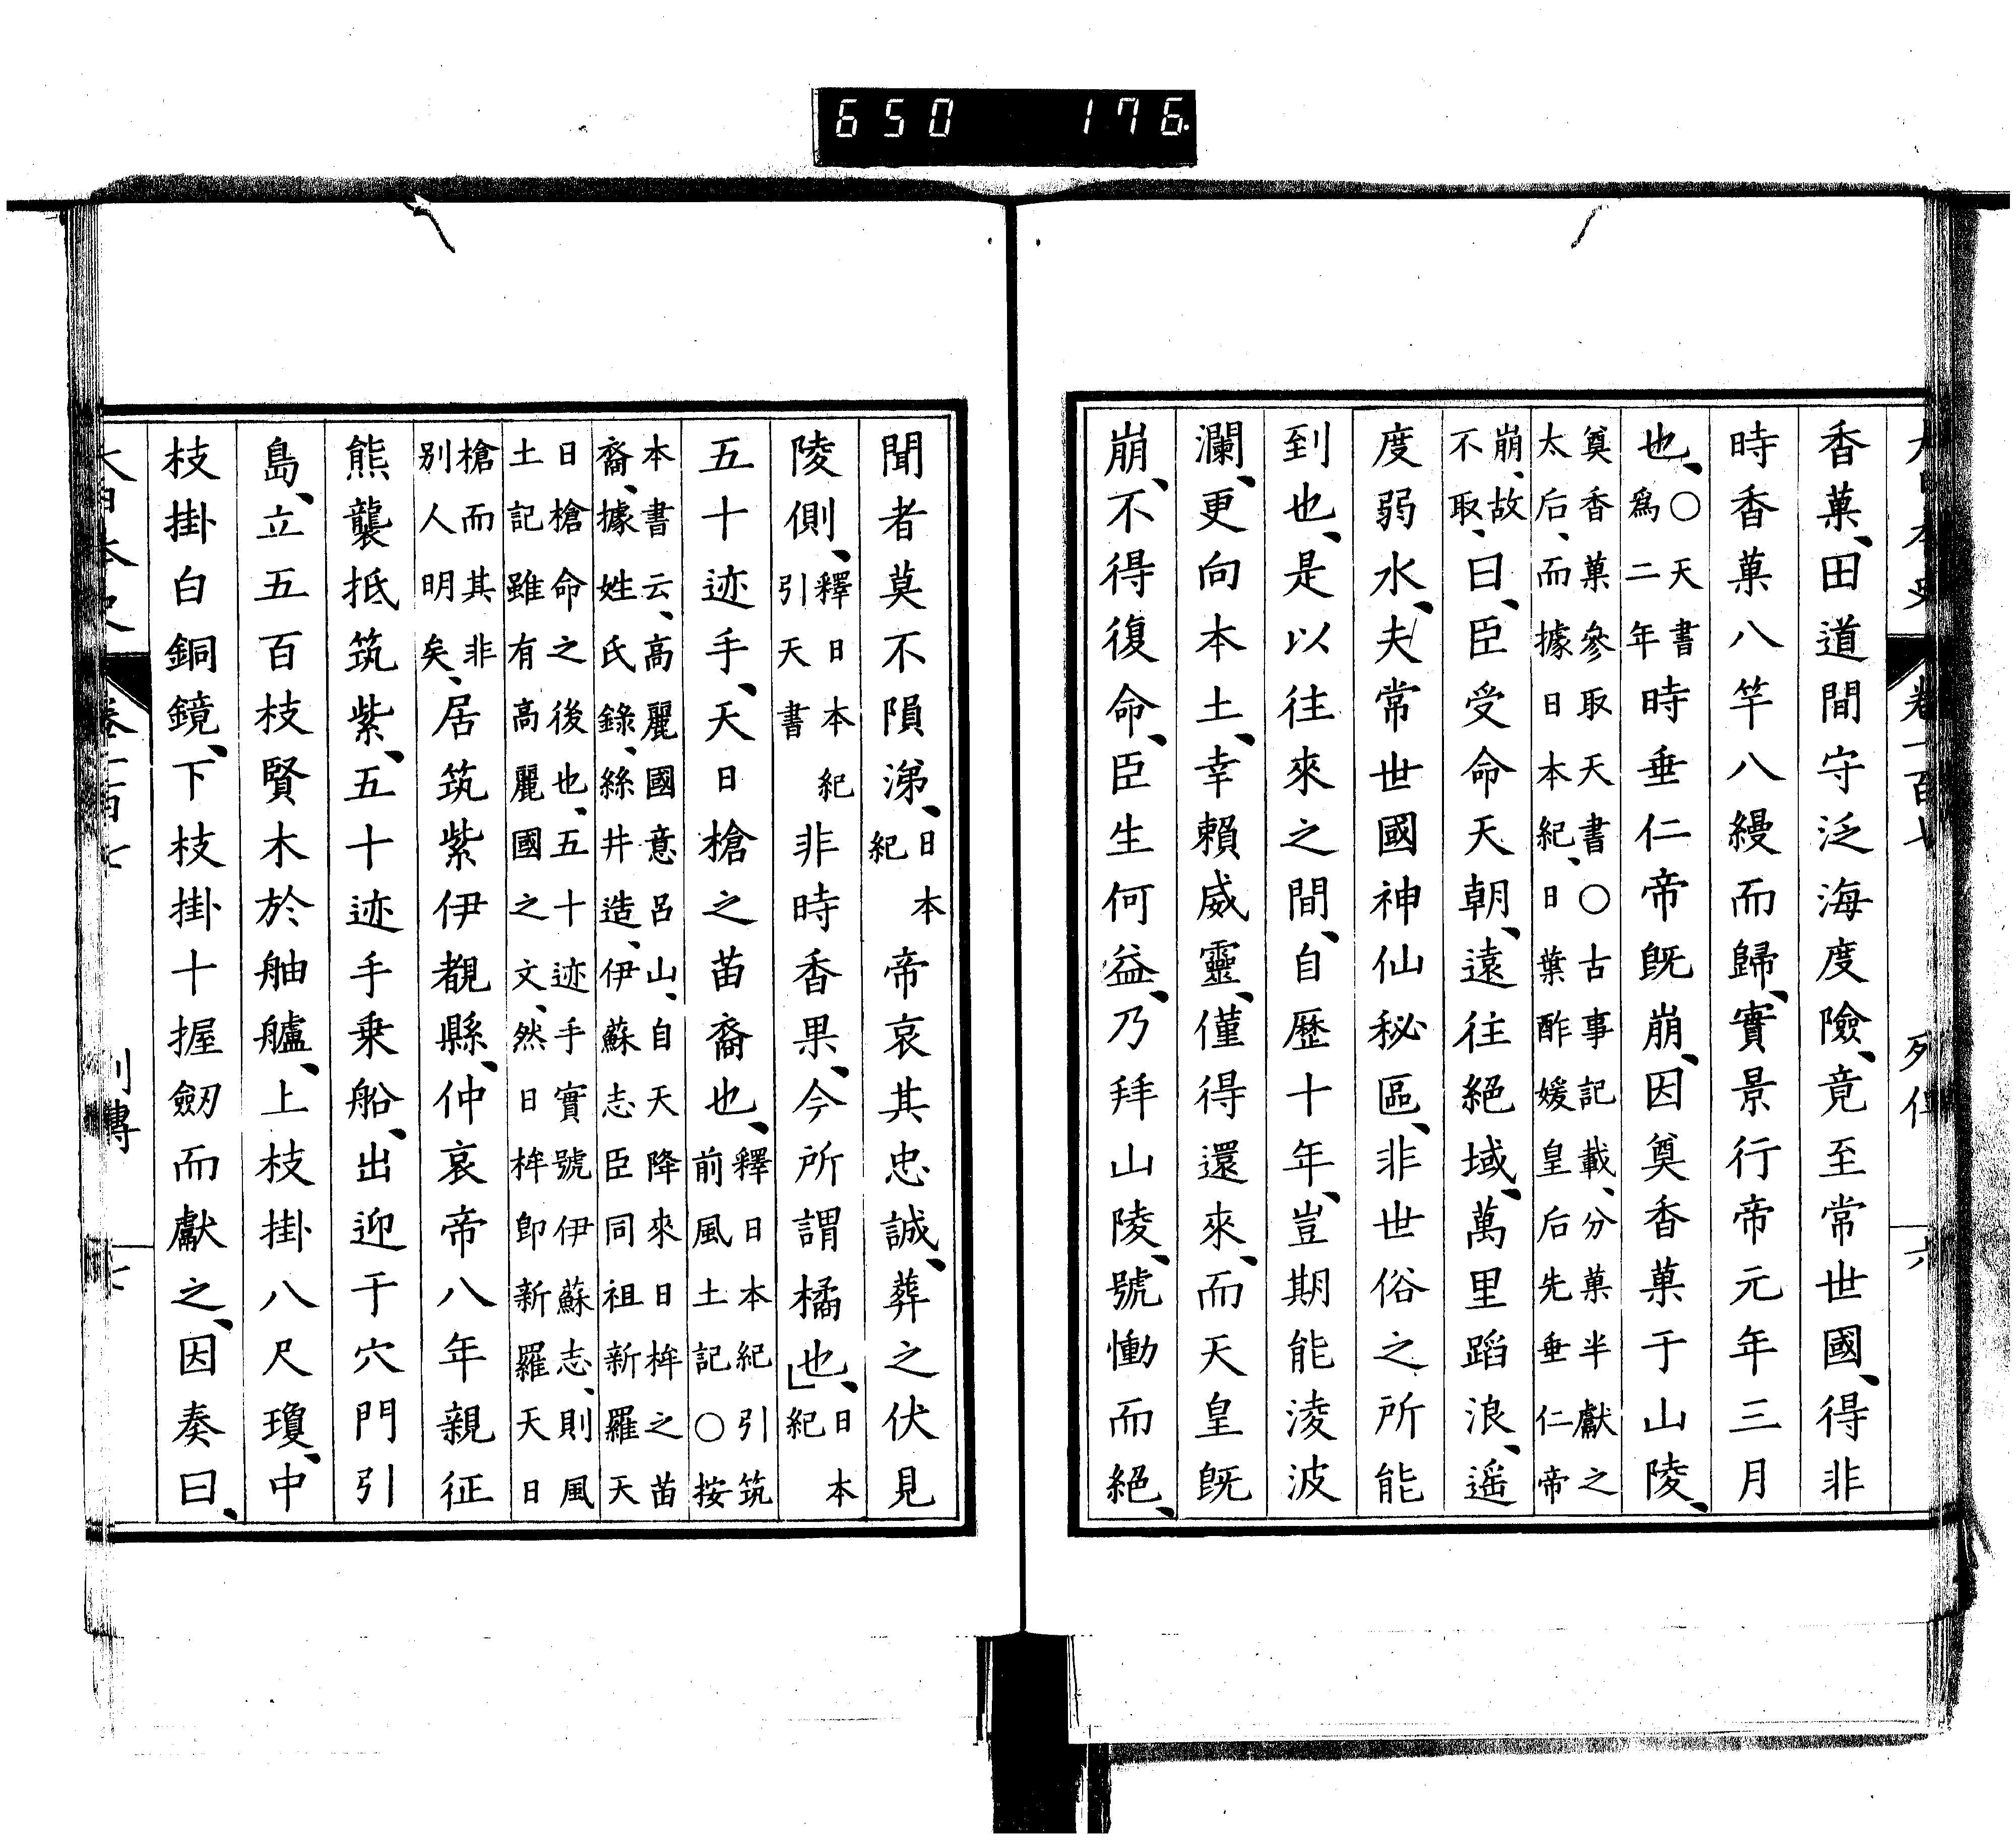 650 176
大日本史 卷一百七 列傳 六
香菓、田道間守泛海度險、竟至常世國、得非
時香菓八竿八縵而歸、實景行帝元年三月
也、○天書爲二年時垂仁帝既崩、因奠香菓于山陵、
奠香菓參取天書○古事記載、分菓半獻之太后、而據日本紀、日葉酢媛皇后先垂仁帝
崩、故不取、曰、臣受命天朝、遠往絕域、萬里蹈浪、遥
度弱水、夫常世國神仙秘區、非世俗之所能
到也、是以往來之間、自歷十年、豈期能淩波
瀾、更向本土、幸賴威靈、僅得還來、而天皇既
崩、不得復命、臣生何益、乃拜山陵、號慟而絕、
聞者莫不隕涕、日本紀帝哀其忠誠、葬之伏見
陵側、釋日本紀引天書非時香果、今所謂橘也、日本紀
五十迹手、天日槍之苗裔也、釋日本紀引筑前風土記○按
本書云、高麗國意呂山、自天降來日桙之苗裔、據姓氏錄、絲井造、伊蘇志臣同祖新羅天
日槍命之後也、五十迹手實號伊蘇志、則風土記雖有高麗國之文、然日桙卽新羅天日
槍而其非別人明矣、居筑紫伊覩縣、仲哀帝八年親征
熊襲抵筑紫、五十迹手乗船、出迎于穴門引
島、立五百枝賢木於舳艫、上枝掛八尺瓊、中
枝掛白銅鏡、下枝掛十握劒而獻之、因奏曰、
大日本史 卷一百七 列傳 七